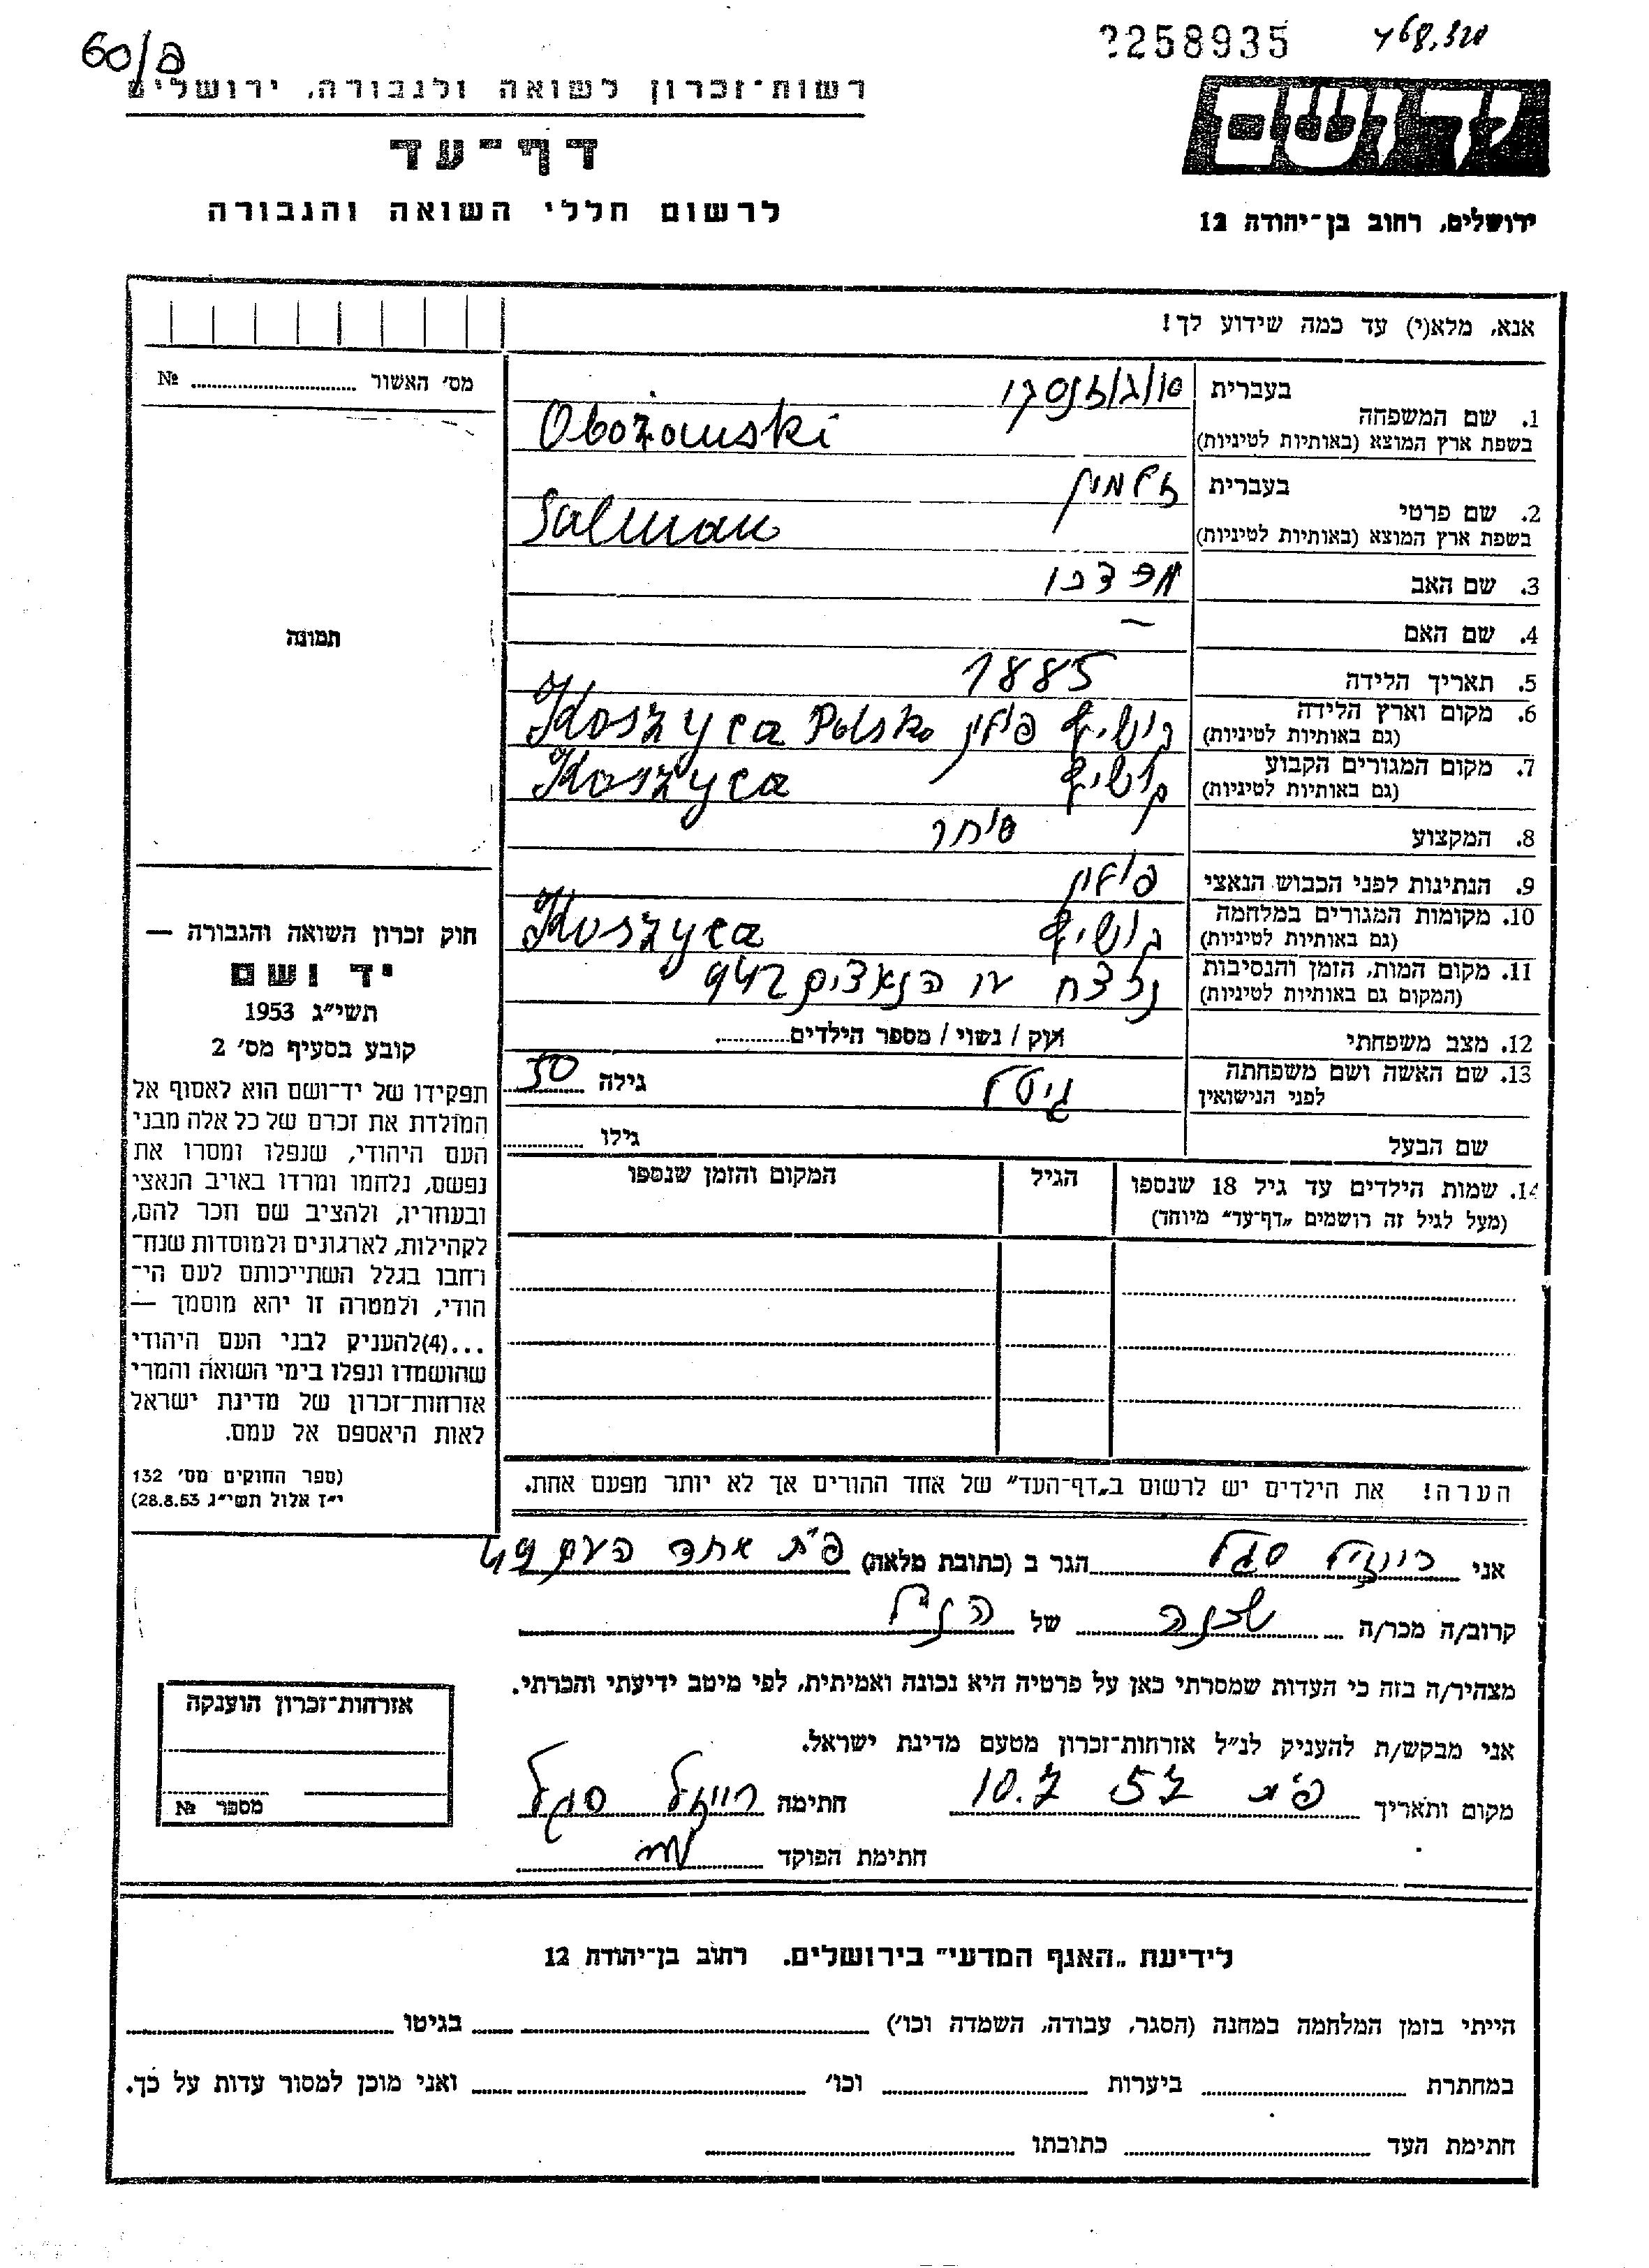 60/ם
2258935
468,320
רשות-זכרון לשואה ולגבורה, ירושלים
דף-עד
לרשום חללי השואה והגבורה
יד ושם
ירושלים, רחוב בן-יהודה 12
אנא, מלא(י) עד כמה שידוע לך!
מס׳ האשור № 
תמונה
חוק זכרון השואה והגבורה —
יד ושם
תשי״ג 1953
קובע בסעיף מס׳ 2
תפקידו של יד-ושם הוא לאסוף אל
המולדת את זכרם של כל אלה מבני
העם היהודי, שנפלו ומסרו את
נפשם, נלחמו ומרדו באויב הנאצי
ובעוזריו, ולהציב שם וזכר להם,
לקהילות, לארגונים ולמוסדות שנח-
רבו בגלל השתייכותם לעם הי-
הודי, ולמטרה זו יהא מוסמך —
...(4)להעניק לבני העם היהודי
שהושמדו ונפלו בימי השואה והמרי
אזרחות-זכרון של מדינת ישראל
לאות היאספם אל עמם.
(ספר החוקים מס׳ 132
י״ז אלול תשי״ג 28.8.53)
בעברית
1. שם המשפחה
בשפת ארץ המוצא (באותיות לטיניות) Obożowski
בעברית זלמן
2. שם פרטי
בשפת ארץ המוצא (באותיות לטיניות) Salman
3. שם האב
4. שם האם —
5. תאריך הלידה 1885
6. מקום וארץ הלידה קושיצה פולין Koszyca Polska
(גם באותיות לטיניות)
7. מקום המגורים הקבוע קושיצה Koszyca
(גם באותיות לטיניות)
8. המקצוע סוחר
9. הנתינות לפני הכבוש הנאצי פולין
10. מקומות המגורים במלחמה קושיצה Koszyca
(גם באותיות לטיניות)
11. מקום המות, הזמן והנסיבות נרצח ע״י הנאצים
(המקום גם באותיות לטיניות)
12. מצב משפחתי רוק / נשוי / מספר הילדים
13. שם האשה ושם משפחתה גיטל גילה 50
לפני הנישואין
שם הבעל גילו
14. שמות הילדים עד גיל 18 שנספו הגיל המקום והזמן שנספו
(מעל לגיל זה רושמים „דף-עד״ מיוחד)
הערה! את הילדים יש לרשום ב„דף-העד״ של אחד ההורים אך לא יותר מפעם אחת.
אני רוזיל סגל הגר ב (כתובת מלאה) פ״ת אחד העם
קרוב/ה מכר/ה שכנה של הנ״ל
מצהיר/ה בזה כי העדות שמסרתי כאן על פרטיה היא נכונה ואמיתית, לפי מיטב ידיעתי והכרתי.
אני מבקש/ת להעניק לנ״ל אזרחות-זכרון מטעם מדינת ישראל.
מקום ותאריך פ״ת 10.7 57 חתימה רוזיל סגל
חתימת הפוקד
אזרחות-זכרון הוענקה
מספר №
לידיעת „האגף המדעי״ בירושלים. רחוב בן-יהודה 12
הייתי בזמן המלחמה במחנה (הסגר, עבודה, השמדה וכו׳) בגיטו
במחתרת ביערות וכו׳ ואני מוכן למסור עדות על כך.
חתימת העד כתובתו